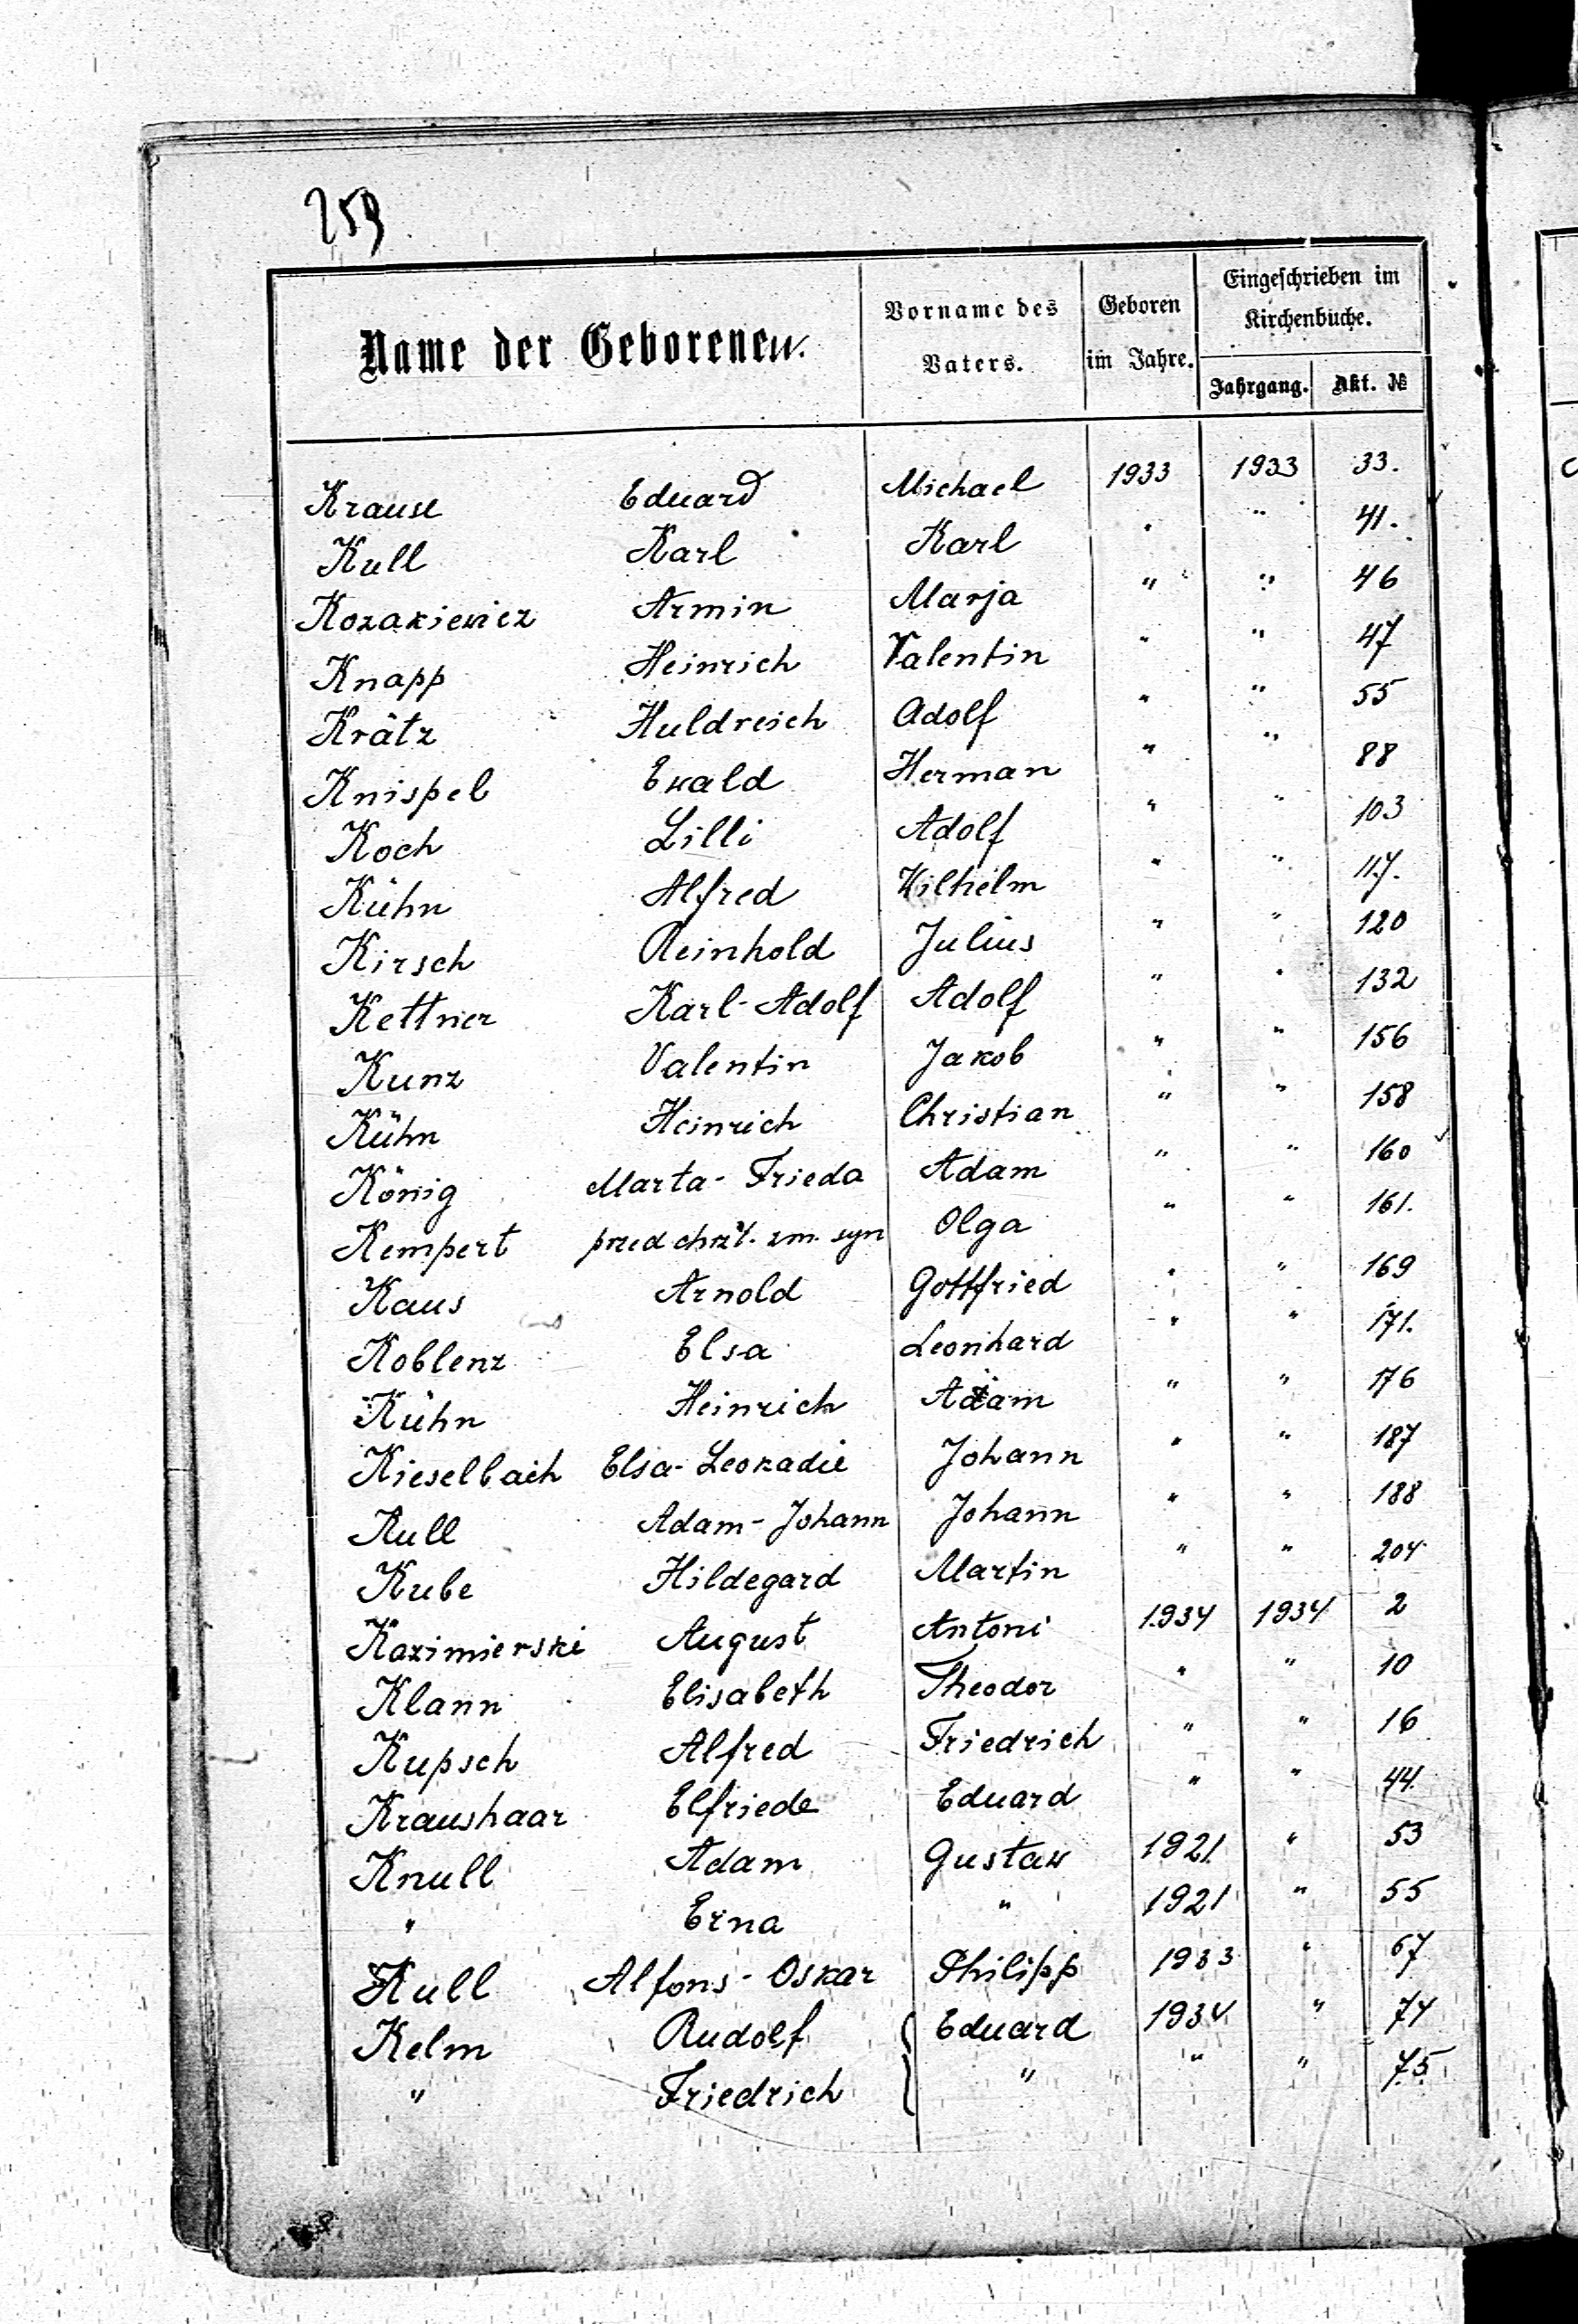 259
Name der Geborenen.
Vorname des Vaters.
Geboren im Jahre.
Eingeschrieben im Kirchenbuche.
Jahrgang. Akt. №
Krause Eduard Michael 1933 1933 33.
Kull Karl Karl " " 41.
Kozakiewicz Armin Marja " " 46
Knapp Heinrich Valentin " " 47
Krätz Huldreich Adolf " " 55
Knispel Ewald Herman " " 88
Koch Lilli Adolf " " 103
Kühn Alfred Wilhelm " " 117.
Kirsch Reinhold Julius " " 120
Kettner Karl-Adolf Adolf " " 132
Kunz Valentin Jakob " " 156
Kühn Heinrich Christian " " 158
König Marta-Frieda Adam " " 160
Kempert przed chrzt. zm. syn Olga " " 161.
Kaus Arnold Gottfried " " 169
Koblenz Elsa Leonhard " " 171.
Kühn Heinrich Adam " " 176
Kieselbach Elsa-Leokadie Johann " " 187
Kull Adam-Johann Johann " " 188
Kube Hildegard Martin " " 204
Kazimierski August Antoni 1934 1934 2
Klann Elisabeth Theodor " " 10
Kupsch Alfred Friedrich " " 16
Kraushaar Elfriede Eduard " " 44.
Knull Adam Gustaw 1921. " 53
" Erna " 1921 " 55
Kull Alfons-Oskar Philipp 1933 " 67
Kelm Rudolf Eduard 1934 " 74
" Friedrich " " " 75